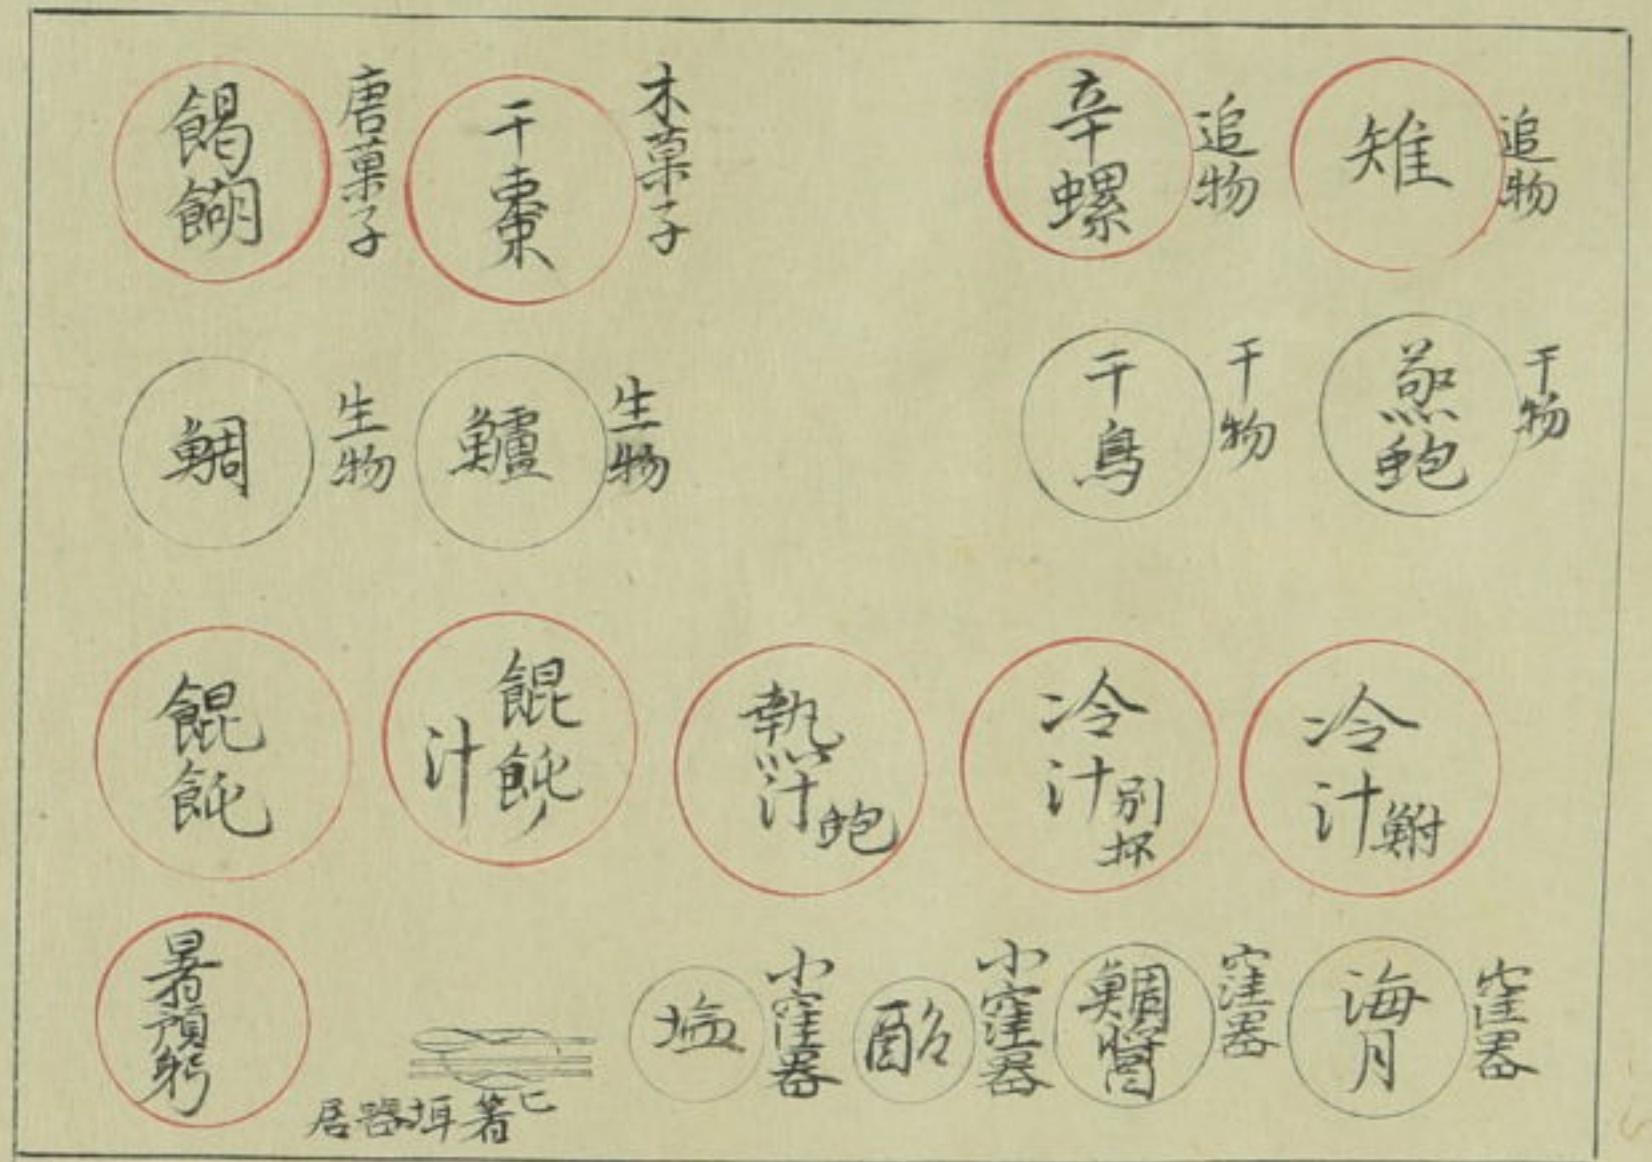 追物
雉
追物
辛螺
木菓子
干棗
唐菓子
餲餬
干物
蒸鮑
干物
干鳥
生物
鱸
生物
鯛
冷汁鮒
冷汁別坏
熱汁鮑
餛飩汁
餛飩
窪器
海月
窪器
鯛醤
小窪器
小窪器
塩
箸匕
居器
暑預